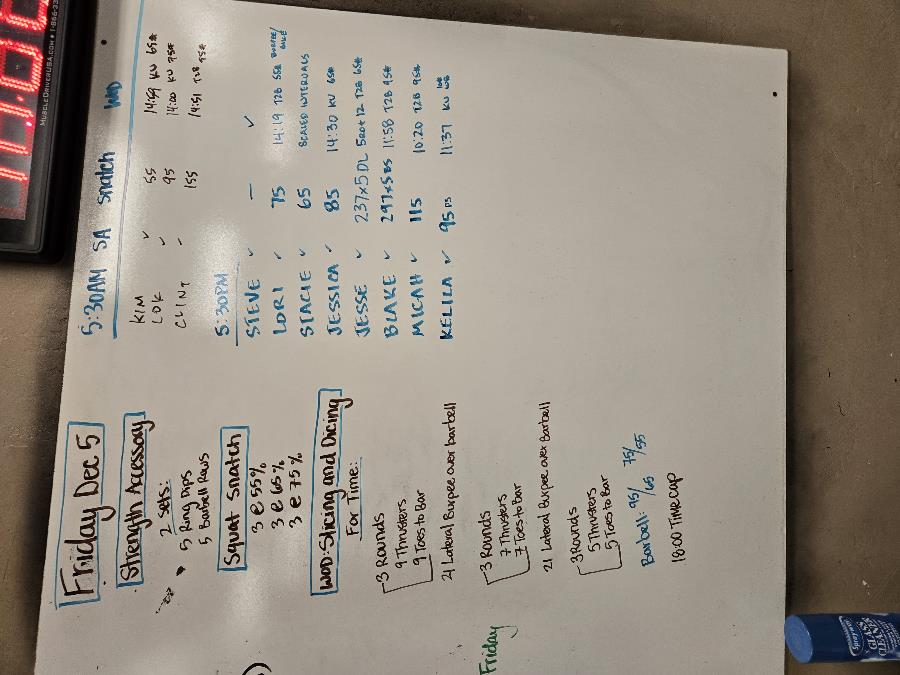 Friday Dec 5
Strength Accessory
2 sets:
5 Ring Dips
5 Barbell Rows
Squat Snatch
3 @ 55%
3 @ 65%
3 @ 75%
WOD: Slicing and Dicing
For Time:
3 Rounds
9 Thrusters
9 Toes to Bar
21 Lateral Burpee over barbell
3 Rounds
7 Thrusters
7 Toes to Bar
21 Lateral Burpee over Barbell
3 Rounds
5 Thrusters
5 Toes to Bar
Barbell: 95/65 75/55
18:00 Time cap
Friday
5:30AM SA Snatch WOD
KIM ✓ 55 14:59 KU 65#
LOK ✓ 95 14:00 KU 75#
CLINT ✓ 155 14:51 T2B 95#
5:30PM
STEVE ✓ — ✓
LORI ✓ 75 14:19 T2B 55#
STACIE ✓ 65 SCALED INTERVALS
JESSICA ✓ 85 14:30 KU 65#
JESSE ✓ 237x5 DL 5RD+12 T2B 65#
BLAKE ✓ 297x5 BS 11:58 T2B 95#
MICAH ✓ 115 10:20 T2B 95#
KELILA ✓ 95 PS 11:37 KU
MUSCLEDRIVERUSA.COM
Sprayway
GLASS
CLEANER